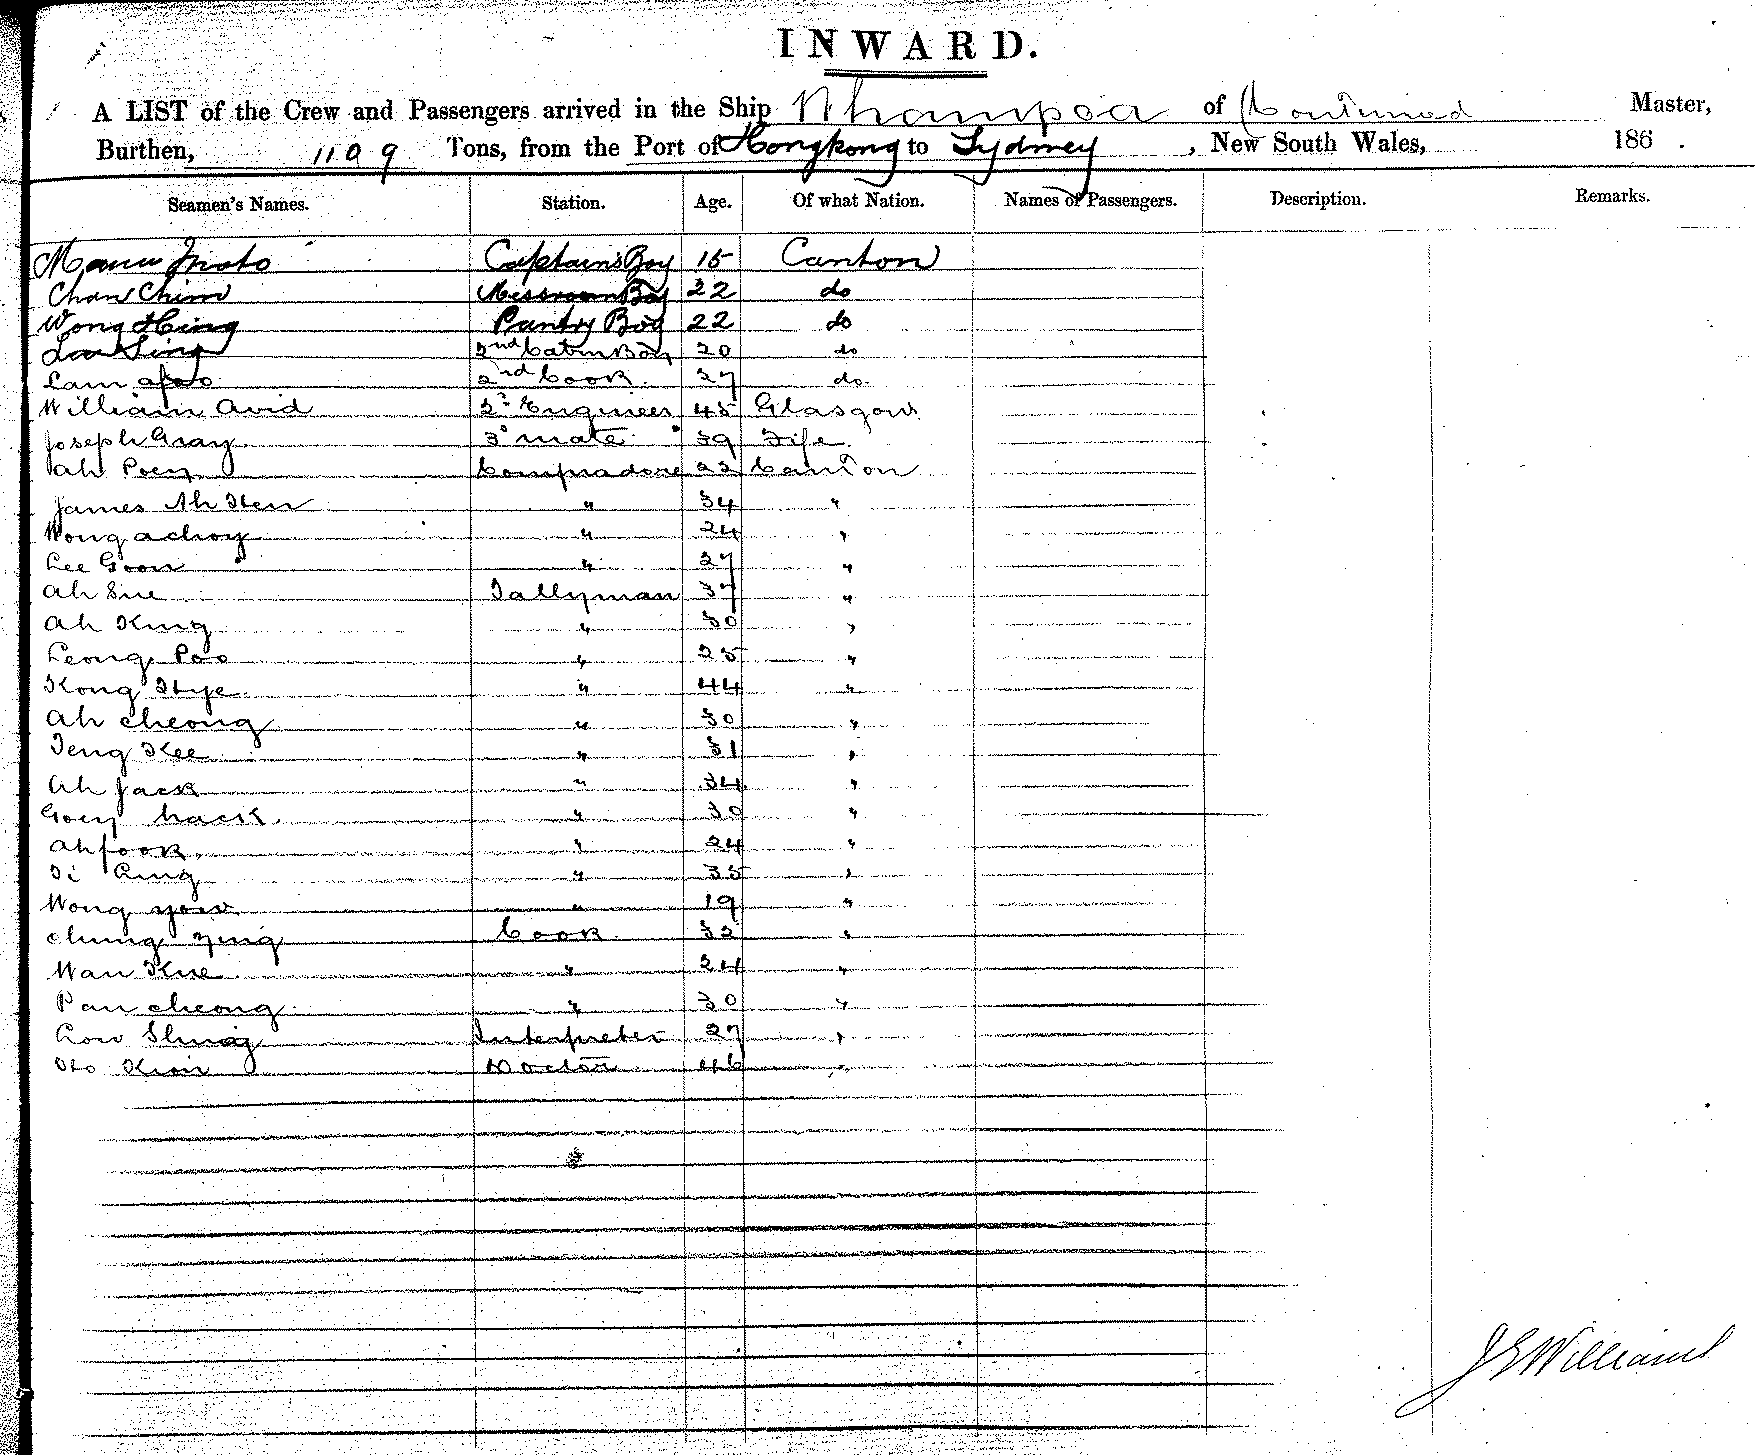 INWARD.
A LIST of the Crew and Passengers arrived in the Ship Whampoa of Continued Master,
Burthen, 1109 Tons, from the Port of Hongkong to Sydney, New South Wales, 186 .
Seamen's Names. Station. Age. Of what Nation. Names of Passengers. Description. Remarks.
Captain's Boy 15 Canton
Chan Chim Messroom Boy 22 do
Wong Hing Pantry Boy 22 do
Lau Sing 2nd Cabin Boy 20 do
Lam 2nd Cook 27 do
William Avid 2d Engineer 45 Glasgow
Joseph Gray 3d mate 39 Fife
Ah Poey Compradore 22 Canton
James Ah Hen " 34 "
Wong achoy " 24 "
Lee Goon " 27 "
Ah Sue Tallyman 37 "
Ah King " 30 "
Leong Poo " 25 "
Kong Hye " 44 "
Ah cheong " 30 "
Teng Kee " 31 "
Ah Jack " 34 "
Goey hack " 30 "
Ah fook " 24 "
" 35 "
Wong yow " 19 "
Chung Cook 32 "
Wan Kue " 24 "
Pan cheong " 30 "
Interpreter 27 "
Doctor 46 "
J S Williams